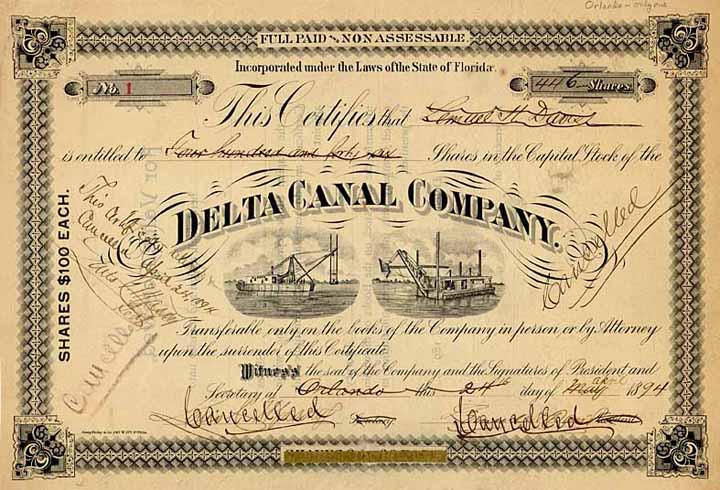 Orlando - only one
FULL PAID AND NON ASSESSABLE
Incorporated under the Laws of the State of Florida.
No. 1
446 Shares
This Certifies that Lemuel H. Davis
is entitled to Four hundred and forty six Shares in the Capital Stock of the
DELTA CANAL COMPANY.
SHARES $100 EACH.
Cancelled
Cancelled
Transferable only on the books of the Company in person or by Attorney
upon the surrender of this Certificate.
Witness the seal of the Company and the Signatures of President and
Secretary at Orlando this 24th day of May april 1894
Cancelled Secretary Cancelled President